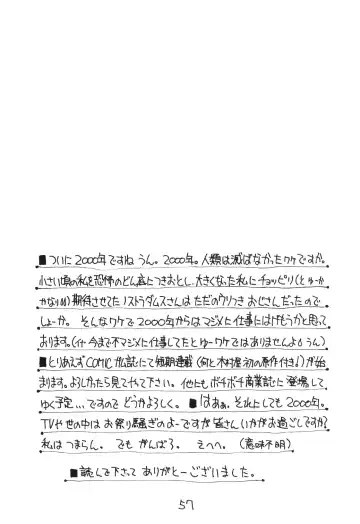 ■ついに2000年ですね うん。2000年。人類は滅ばなかったワケですが。
小さい頃の私を恐怖のどん底につきおとし、大きくなった私にチョッピリ(とゆーか
かなりめ)期待させてたノストラダムスさんは ただのウソつき おじさんだったので
しょーか。 そんなワケで2000年からはマジメに仕事にはげもうかと思って
おります。(イヤ 今まで不マジメに仕事してたとゆーワケではありませんよ うん)
■とりあえずCOMIC 誌にて短期連載(何と木村屋初の原作付き!)が始
まります。よろしかったら見てやって下さい。他にもボチボチ商業誌に登場して
ゆく予定...ですので どうかよろしく。 ■はぁぁ。それにしても2000年。
TVや世の中は お祭り騒ぎのよーですが皆さんいかがお過ごしですか?
私はつまらん。 でも がんばろ。 えへへ。 (意味不明)
■読んで下さって ありがとーございました。
57